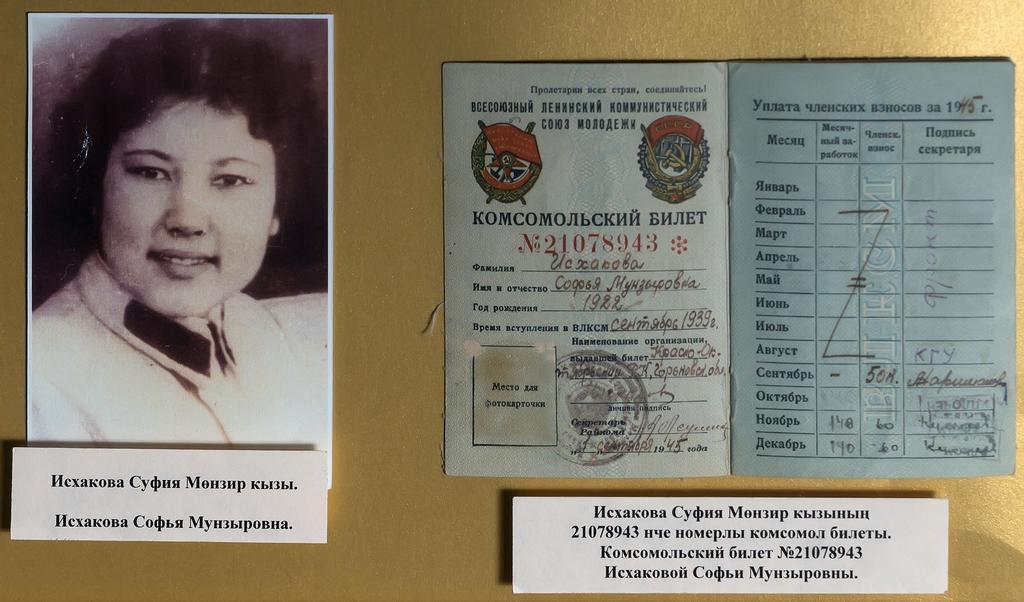 Исхакова Суфия Мөнзир кызы.
Исхакова Софья Мунзыровна.
Пролетарии всех стран, соединяйтесь!
ВСЕСОЮЗНЫЙ ЛЕНИНСКИЙ КОММУНИСТИЧЕСКИЙ
СОЮЗ МОЛОДЕЖИ
КОМСОМОЛЬСКИЙ БИЛЕТ
№21078943
Фамилия Исхакова
Имя и отчество Софья Мунзыровна
Год рождения 1922
Время вступления в ВЛКСМ сентябрь 1939г.
Наименование организации,
выдавшей билет Красно-Ок-
Место для
фотокарточки
личная подпись
Секретарь
Райкома
1 сентября 1945 года
Уплата членских взносов за 1945 г.
Месяц Месяч-ный за-работок Членск. взнос Подпись секретаря
Январь
Февраль
Март
Апрель
Май
Июнь
Июль
Август КГУ
Сентябрь - 50к.
Октябрь
Ноябрь 140 60
Декабрь 140 60
фронт
Исхакова Суфия Мөнзир кызының
21078943 нче номерлы комсомол билеты.
Комсомольский билет №21078943
Исхаковой Софьи Мунзыровны.